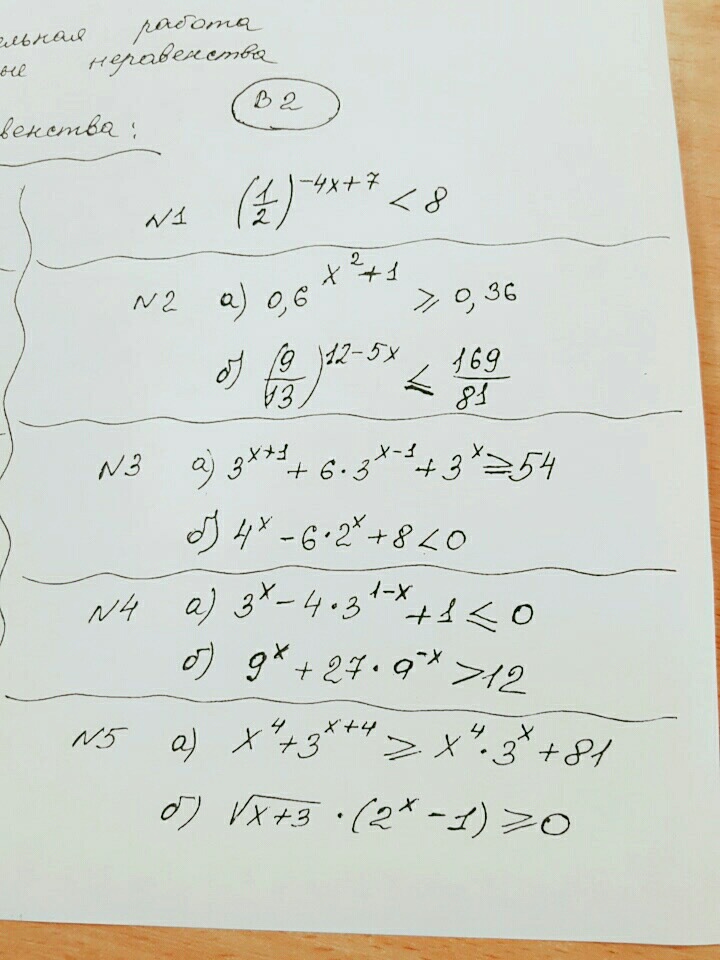 работа
неравенства
В 2
:
N1 (1/2)^(-4x+7) < 8
N2 а) 0,6^(x^2+1) ⩾ 0,36
б) (9/13)^(12-5x) ⩽ 169/81
N3 а) 3^(x+1) + 6·3^(x-1) + 3^x ⩾ 54
б) 4^x - 6·2^x + 8 < 0
N4 а) 3^x - 4·3^(1-x) + 1 ⩽ 0
б) 9^x + 27·9^(-x) > 12
N5 а) x^4 + 3^(x+4) ⩾ x^4·3^x + 81
б) √(x+3)·(2^x - 1) ⩾ 0